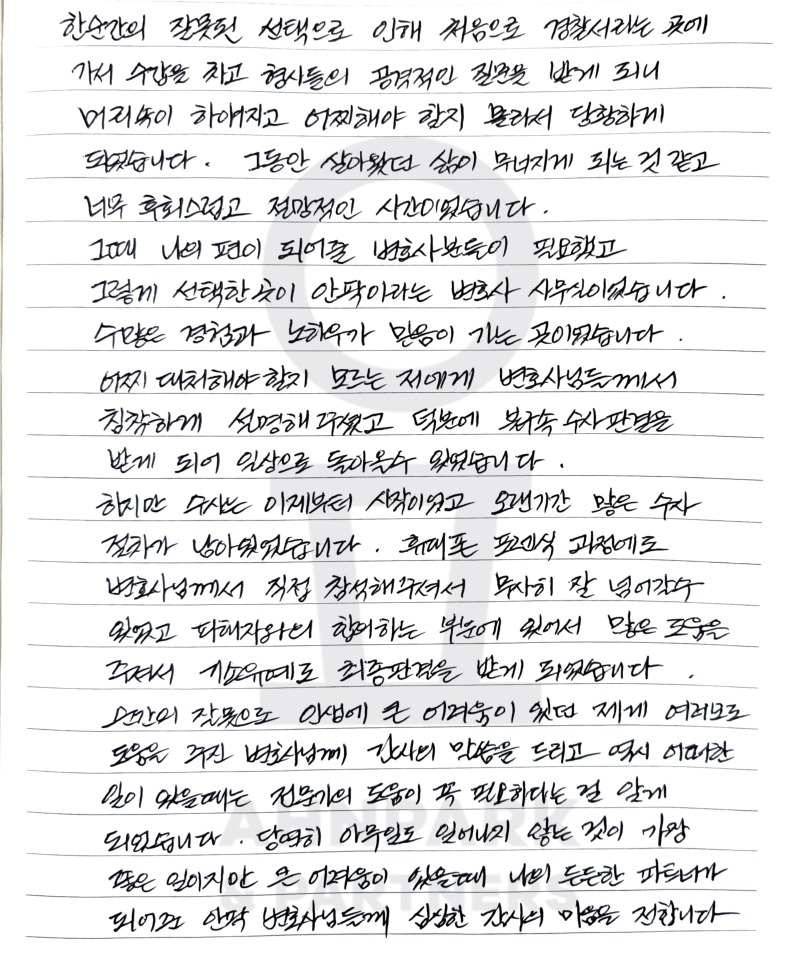 한순간의 잘못된 선택으로 인해 처음으로 경찰서라는 곳에
가서 수갑을 차고 형사들의 공격적인 질문을 받게 되니
머리속이 하얘지고 어찌해야 할지 몰라서 당황하게
되었습니다. 그동안 살아왔던 삶이 무너지게 되는 것 같고
너무 후회스럽고 절망적인 시간이었습니다.
그때 나의 편이 되어줄 변호사분들이 필요했고
그렇게 선택한 곳이 안팍이라는 변호사 사무실이었습니다.
수많은 경험과 노하우가 믿음이 가는 곳이었습니다.
어찌 대처해야 할지 모르는 저에게 변호사님들께서
침착하게 설명해 주셨고 덕분에 불구속 수사 판결을
받게 되어 일상으로 돌아올수 있었습니다.
하지만 수사는 이제부터 시작이었고 오랜기간 많은 수사
절차가 남아있었습니다. 휴대폰 포렌식 과정에도
변호사님께서 직접 참석해주셔서 무사히 잘 넘어갈수
있었고 피해자와의 합의하는 부분에 있어서 많은 도움을
주셔서 기소유예로 최종판결을 받게 되었습니다.
순간의 잘못으로 인생에 큰 어려움이 있던 제게 여러모로
도움을 주신 변호사님께 감사의 말씀을 드리고 역시 어떠한
일이 있을때는 전문가의 도움이 꼭 필요하다는 걸 알게
되었습니다. 당연히 아무일도 일어나지 않는 것이 가장
좋은 일이지만 큰 어려움이 있을때 나의 든든한 파트너가
되어준 안팍 변호사님들께 심심한 감사의 마음을 전합니다
AHNPARK
& PARTNERS